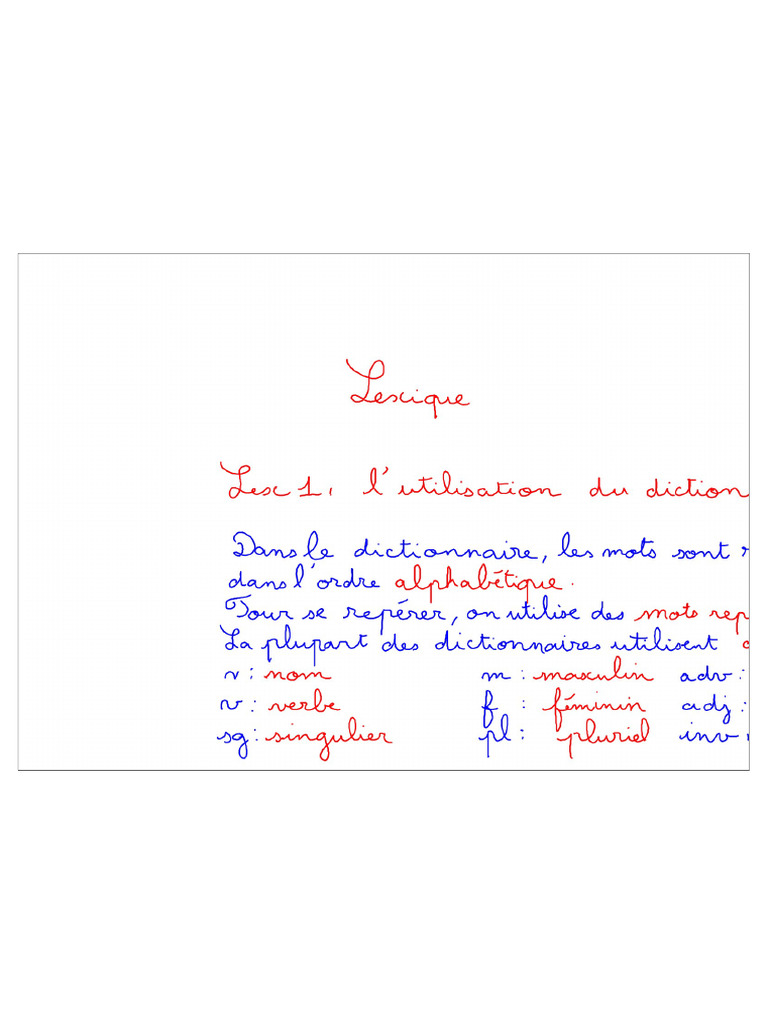 Lexique
Lex 1, l'utilisation du diction
Dans le dictionnaire, les mots sont
dans l'ordre alphabétique.
Pour se repérer, on utilise des mots rep
La plupart des dictionnaires utilisent
n : nom m : masculin adv :
v : verbe f : féminin adj :
sg : singulier pl : pluriel inv